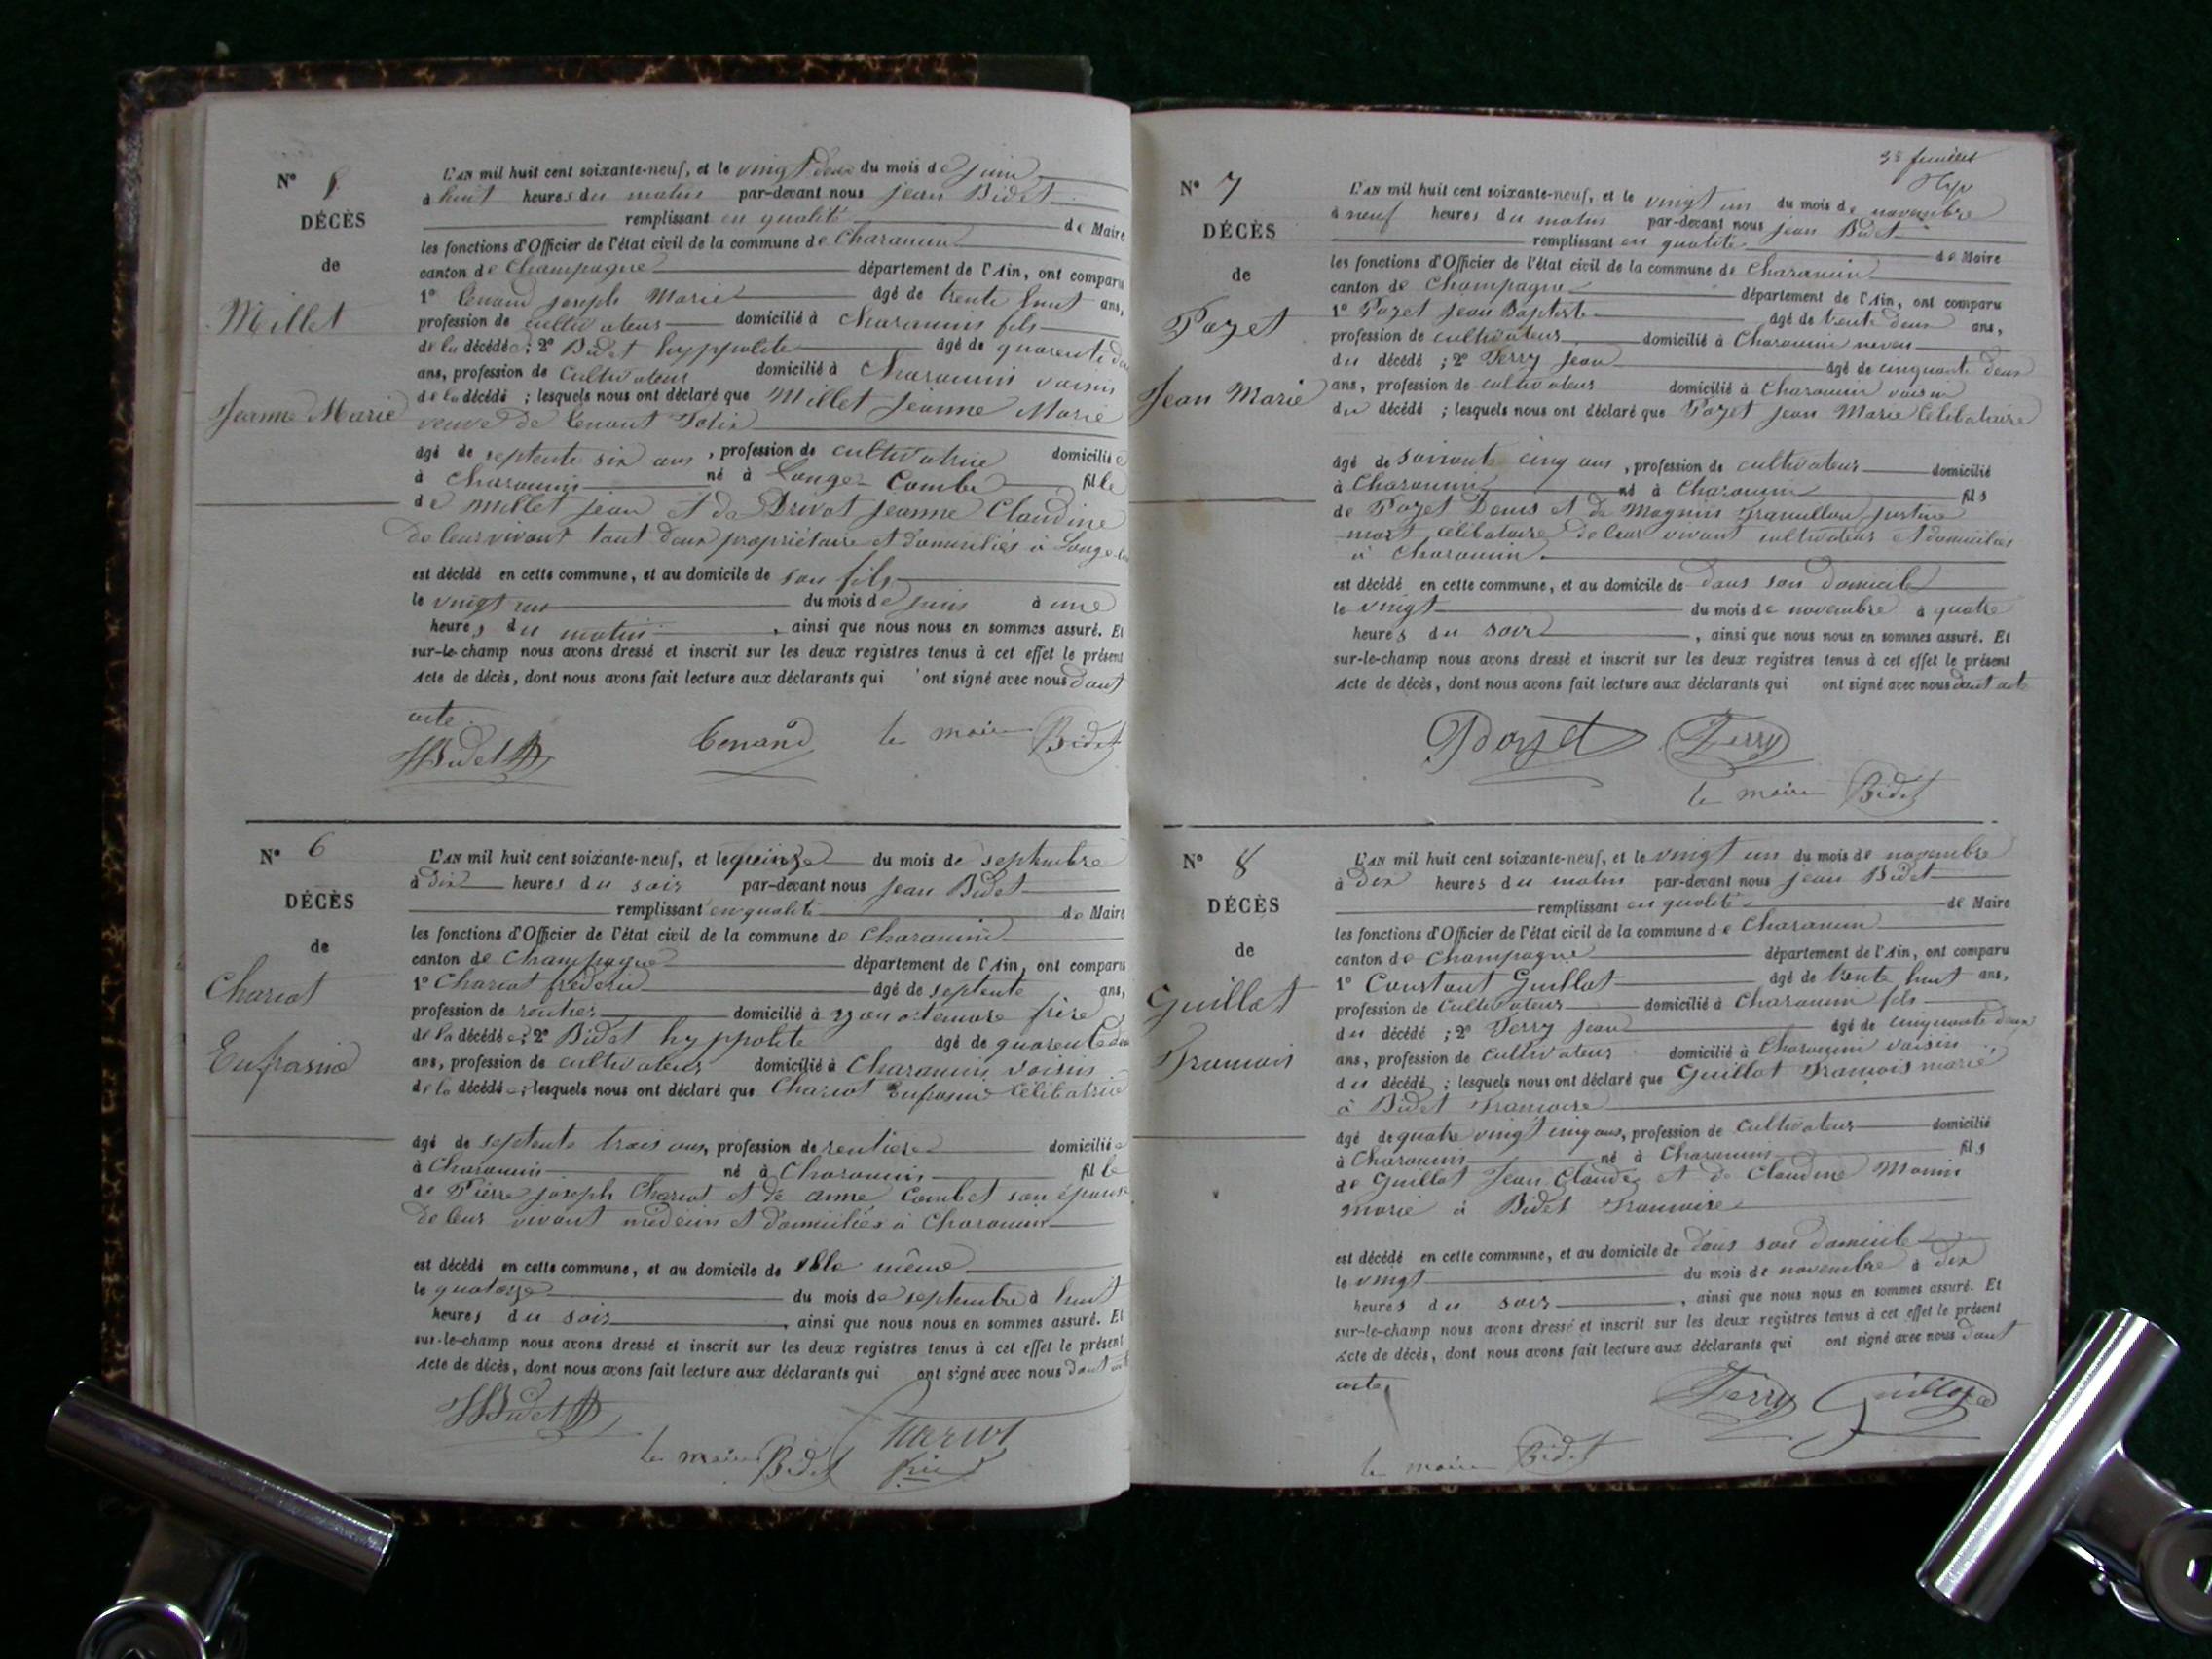 N° 5
DÉCÈS
de
Millet
Jeanne Marie
L'AN mil huit cent soixante-neuf, et le vingt deux du mois de juin
à huit heures du matin par-devant nous jean Bidet
remplissant en qualité de Maire
les fonctions d'Officier de l'état civil de la commune de Charancin
canton de Champagne département de l'Ain, ont comparu
1° joseph Marie âgé de trente huit ans,
profession de cultivateur domicilié à Charancin fils
de la décédée ; 2° Bidet hyppolite âgé de quarente
ans, profession de cultivateur domicilié à Charancin voisin
de la décédé ; lesquels nous ont déclaré que Millet jeanne Marie
veuve de
âgé de septente six ans, profession de cultivatrice domicilié
à Charancin né à Longe-Combe fille
de millet jean et de Drivot jeanne Claudine
de leur vivant tout deux propriétaire et domiciliés à
est décédé en cette commune, et au domicile de son fils
le vingt un du mois de juin à une
heures du matin, ainsi que nous nous en sommes assuré. Et
sur-le-champ nous avons dressé et inscrit sur les deux registres tenus à cet effet le présent
Acte de décès, dont nous avons fait lecture aux déclarants qui ont signé avec nous dont
acte.
HBidet le maire Bidet
N° 6
DÉCÈS
de
Chariot
Eufrasine
L'AN mil huit cent soixante-neuf, et le quinze du mois de septembre
à dix heures du soir par-devant nous jean Bidet
remplissant en qualité de Maire
les fonctions d'Officier de l'état civil de la commune de Charancin
canton de Champagne département de l'Ain, ont comparu
1° Chariot frederic âgé de septente ans,
profession de rentier domicilié à frère
de la décédée ; 2° Bidet hyppolite âgé de quarente
ans, profession de cultivateur domicilié à Charancin voisin
de la décédé ; lesquels nous ont déclaré que Chariot Eufrosine
âgé de septente trois ans, profession de rentiere domicilié
à Charancin né à Charancin fille
de Pierre joseph Chariot et de anne Combet son épouse
de leur vivant médecin et domiciliés à Charancin
est décédé en cette commune, et au domicile de elle même
le quatorze du mois de septembre à huit
heures du soir, ainsi que nous nous en sommes assuré. Et
sur-le-champ nous avons dressé et inscrit sur les deux registres tenus à cet effet le présent
Acte de décès, dont nous avons fait lecture aux déclarants qui ont signé avec nous dont
HBidet le maire Bidet Chariot
3e feuillet
N° 7
DÉCÈS
de
Pozet
Jean Marie
L'AN mil huit cent soixante-neuf, et le vingt un du mois de novembre
à neuf heures du matin par-devant nous jean Bidet
remplissant en qualité de Maire
les fonctions d'Officier de l'état civil de la commune de Charancin
canton de Champagne département de l'Ain, ont comparu
1° Pozet jean Baptiste âgé de trente deux ans,
profession de cultivateur domicilié à Charancin neveu
du décédé ; 2° Ferry jean âgé de cinquante deux
ans, profession de cultivateur domicilié à Charancin voisin
du décédé ; lesquels nous ont déclaré que Pozet jean Marie Célibataire
âgé de soixante cinq ans, profession de cultivateur domicilié
à Charancin né à Charancin fils
de Pozet Denis et de Magnin
mort célibataire de leur vivant cultivateur et domiciliés
à Charancin
est décédé en cette commune, et au domicile de dans son domicile
le vingt du mois de novembre à quatre
heures du soir, ainsi que nous nous en sommes assuré. Et
sur-le-champ nous avons dressé et inscrit sur les deux registres tenus à cet effet le présent
Acte de décès, dont nous avons fait lecture aux déclarants qui ont signé avec nous dont acte
Pozet Ferry
le maire Bidet
N° 8
DÉCÈS
de
Guillot
Francois
L'AN mil huit cent soixante-neuf, et le vingt un du mois de novembre
à dix heures du matin par-devant nous jean Bidet
remplissant en qualité de Maire
les fonctions d'Officier de l'état civil de la commune de Charancin
canton de Champagne département de l'Ain, ont comparu
1° Constant Guillot âgé de trente huit ans,
profession de cultivateur domicilié à Charancin fils
du décédé ; 2° Ferry jean âgé de cinquante deux
ans, profession de cultivateur domicilié à Charancin voisin
du décédé ; lesquels nous ont déclaré que Guillot François marié
à Bidet Francoise
âgé de quatre vingt cinq ans, profession de cultivateur domicilié
à Charancin né à Charancin fils
de Guillot Jean Claude et de Claudine Monin
marié à Bidet Francoise
est décédé en cette commune, et au domicile de dans son domicile
le vingt du mois de novembre à dix
heures du soir, ainsi que nous nous en sommes assuré. Et
sur-le-champ nous avons dressé et inscrit sur les deux registres tenus à cet effet le présent
Acte de décès, dont nous avons fait lecture aux déclarants qui ont signé avec nous dont
acte
Ferry Guillot
le maire Bidet